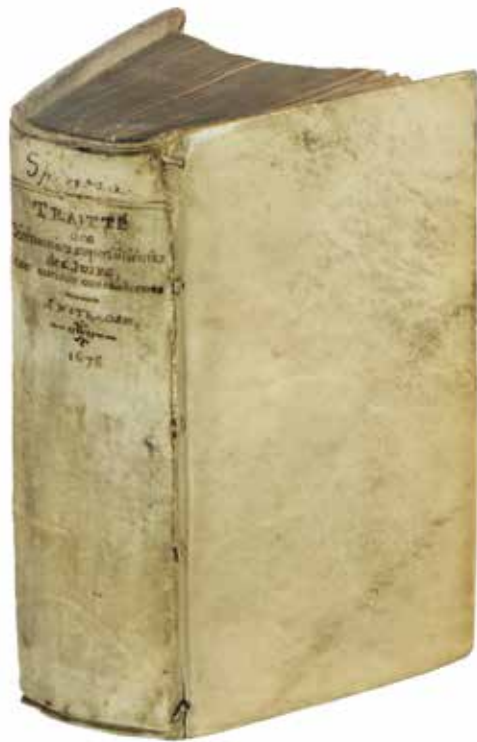 Spinosa.
TRAITTÉ
des
Cérémonies superstitieuses
des Juifs,
tant anciens que modernes
AMSTERDAM,
1678